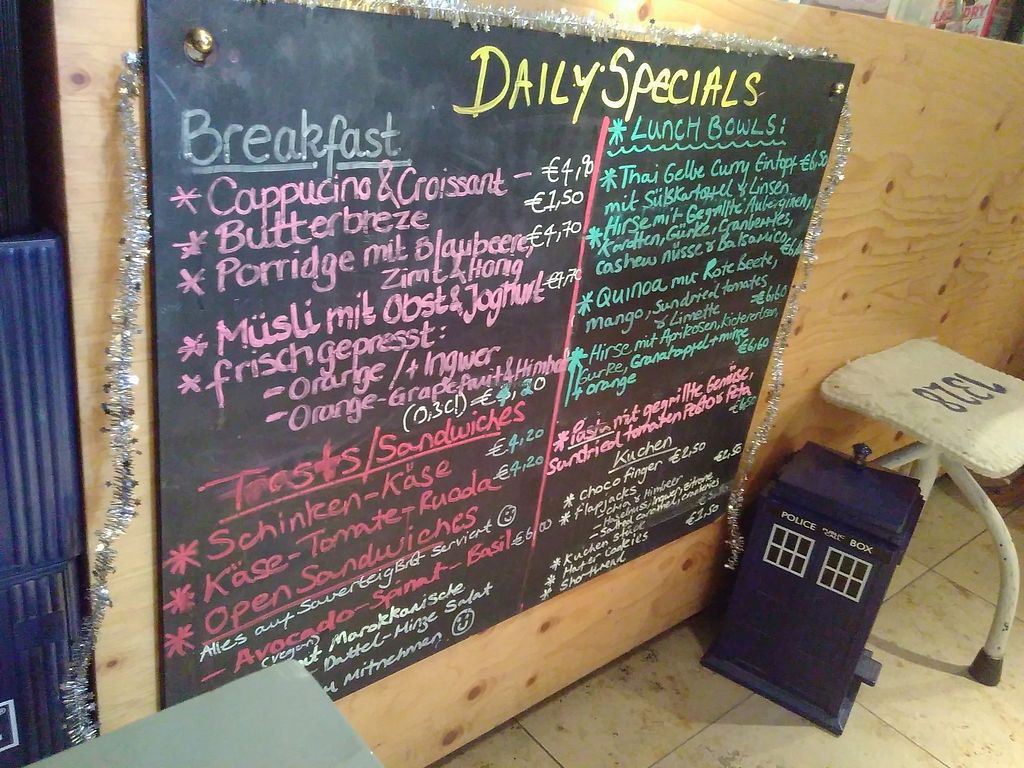 DAILY·SPECIALS
Breakfast
* Cappucino & Croissant -
* Butterbreze €1,50
* Porridge mit Blaubeere, €4,70
Zimt & Honig
* Müsli mit Obst & Joghurt €4,70
* frisch gepresst:
- orange / + Ingwer
- Orange-Grapefruit & Himbeer
(0,3cl) €4,20
Toasts/Sandwiches
* Schinken-Käse €4,20
* Käse-Tomate-Rucola €4,20
* Open Sandwiches
Alles auf Sauerteigbrot serviert
- Avocado-Spinat-Basil €6,00
(vegan)
mit Marokkanische
Dattel-Minze Salat
mitnehmen
* LUNCH BOWLS:
* Thai Gelbe Curry Eintopf €6,50
mit Süßkartoffel & Linsen
* Hirse mit Gegrillte Auberginen,
Karotten, Gurke, Cranberries,
cashew nüsse & Balsamico
* Quinoa mit Rote Beete,
mango, sundried tomates
& Limette €6,60
* Hirse mit Aprikosen, Kichererbsen,
Gurke, Granatapfel + minze
+ orange €6,60
* Pasta mit gegrillte Gemüse,
Sundried tomaten Pesto & Feta
Kuchen
* choco finger €2,50
* flapjacks €2,50
* Kuchen
* Hafer cookies
* Shortbread
€2,50
POLICE PUBLIC CALL BOX
1328